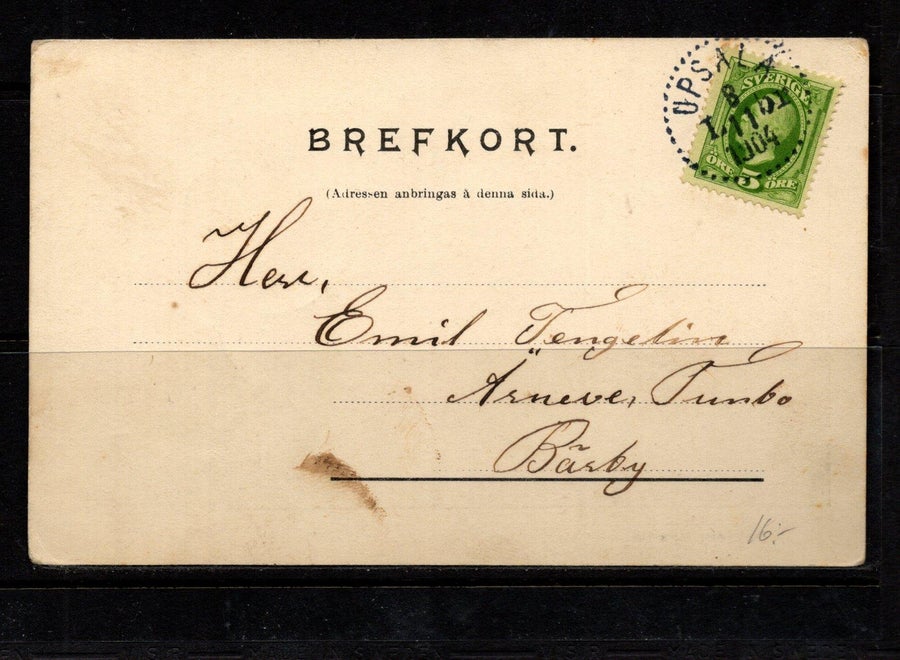 UPSALA
8
1904
SVERIGE
ÖRE 5 ÖRE
BREFKORT.
(Adressen anbringas å denna sida.)
Herr,
Emil Tengelin
Ärneve, Tunbo
Bärby
16:-